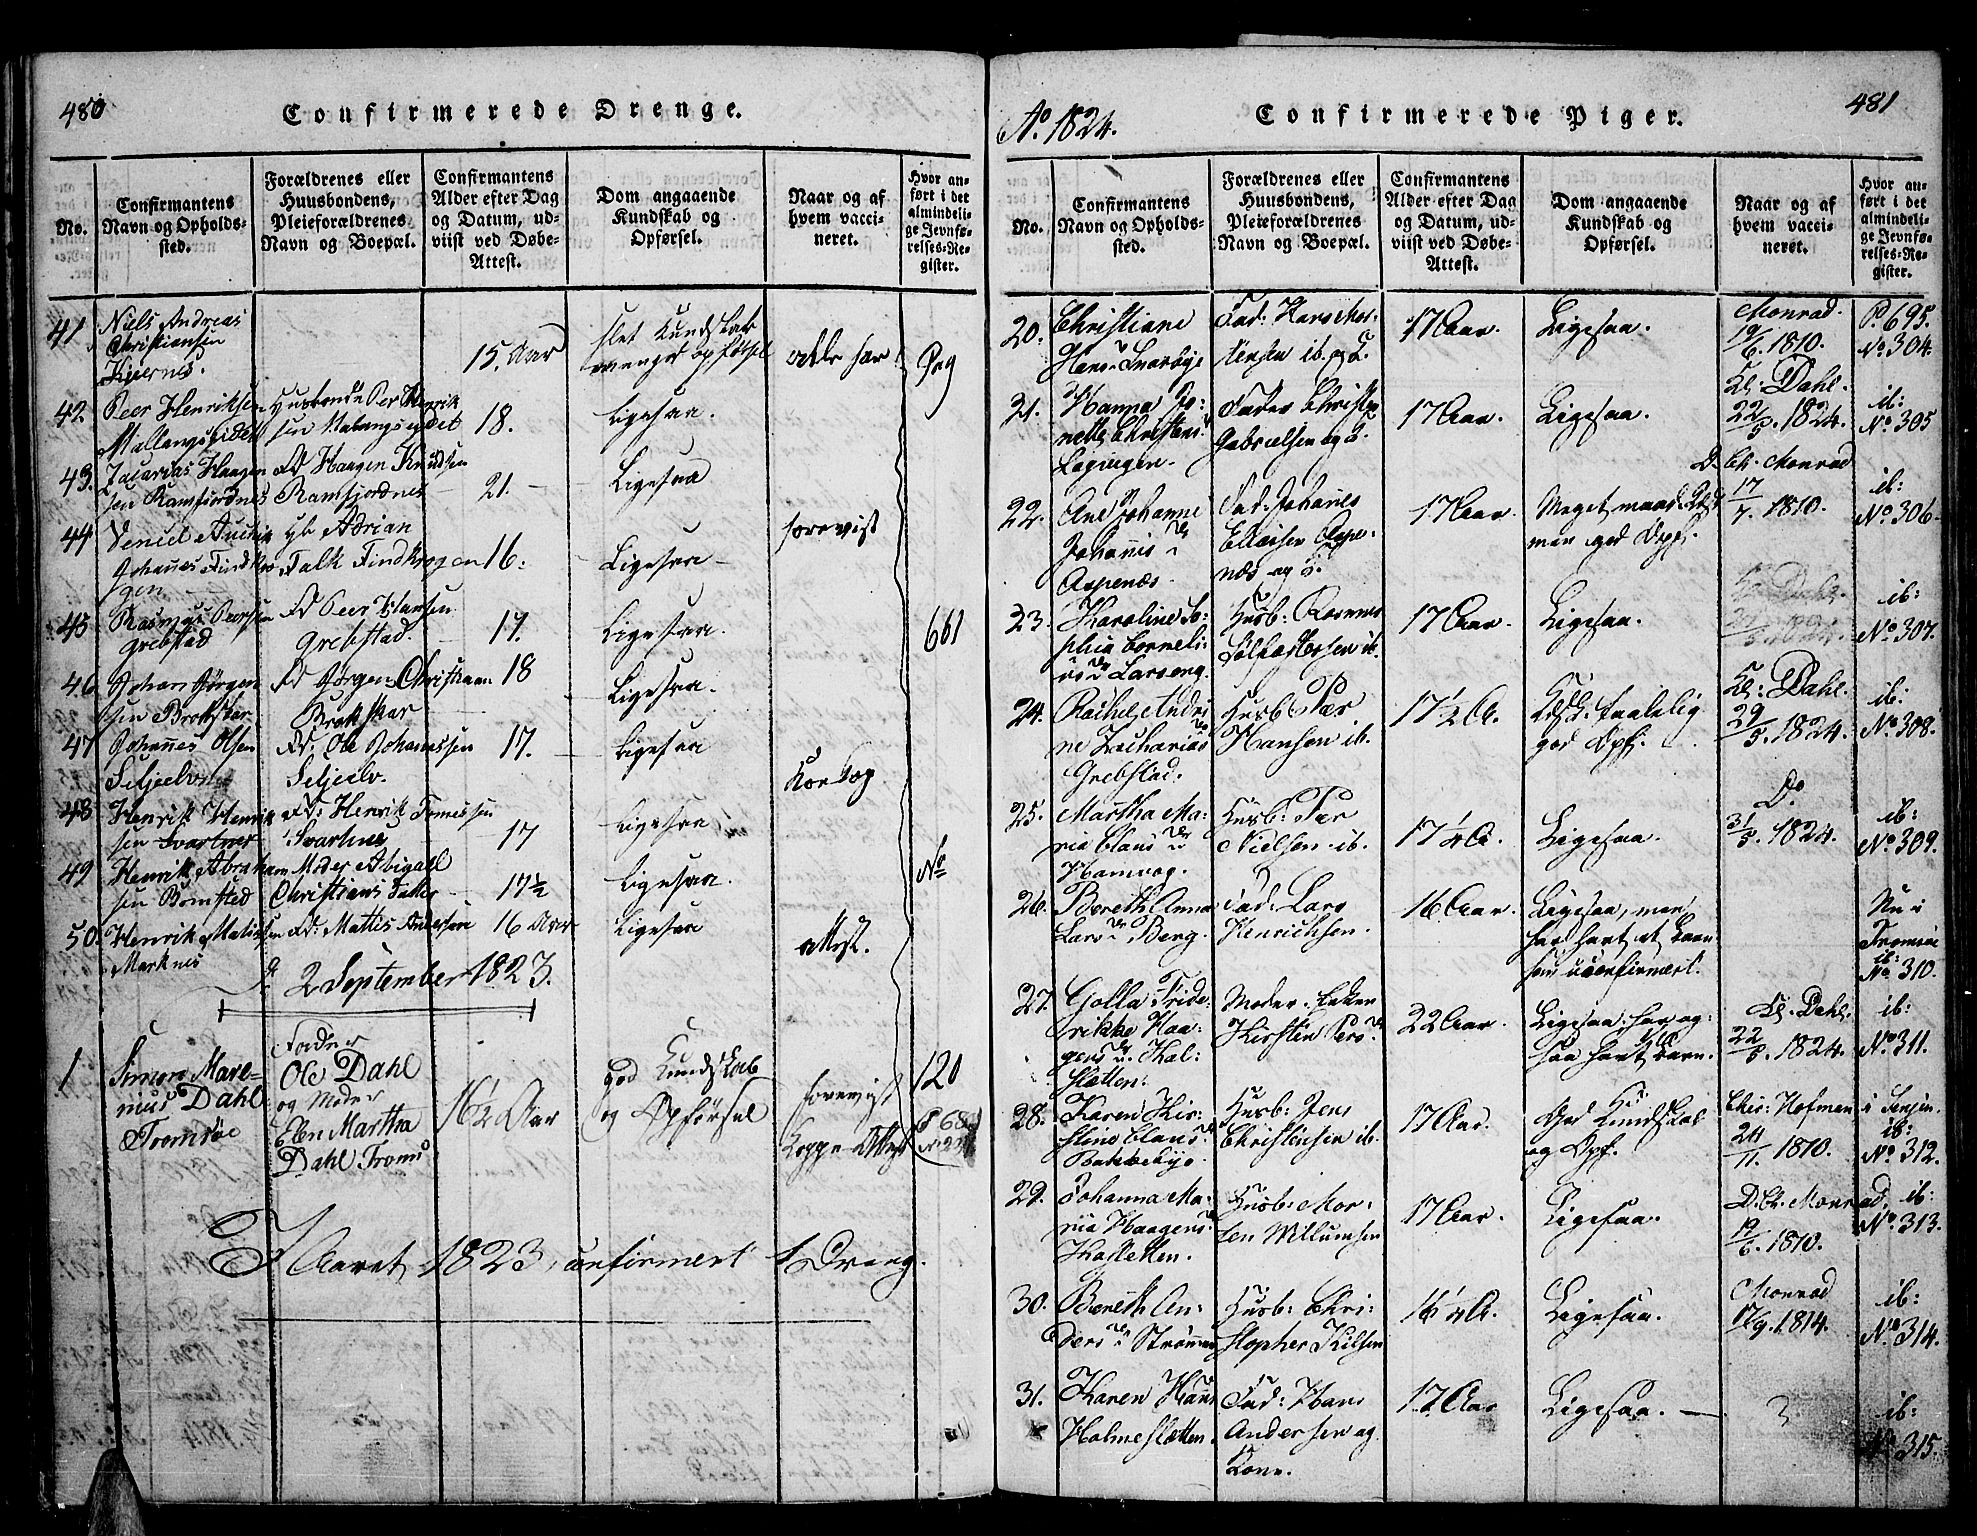 480
Confirmerede Drenge.
No.
Confirmantens Navn og Opholds-sted.
Forældrenes eller Huusbondens, Pleieforældrenes Navn og Boepæl.
Confirmantens Alder efter Dag og Datum, ud-viist ved Døbe-Attest.
Dom angaaende Kundskab og Opførsel.
Naar og af hvem vacci-neret.
Hvor an-ført i det almindeli-ge Jevnfø-relses-Re-gister.
41
Niels Andreas
Christiansen
15. Aar
slet Kundskab
Pag
42
Peer Henriksen
Mallangseidet
18.
Ligesaa.
43.
Zacarias Haagen
sen Ramfjordnes
Fd Haagen Knudsen
Ramfjordnes
21.
Ligesaa
44
Adrian
Falk Findkrogen
16.
Ligesaa
forevist
45
Rasmus Peersen
Grebstad
Fd Peer Hansen
Grebstad.
17.
Ligesaa.
661
46
Johan Jørgen
sen
Fd Jørgen Christiaan
18
Ligesaa.
47
Johannes Olsen
Seljeelv
Fd: Ole Johannessen
Seljeelv.
17.
Ligesaa
48
Henrik Henrik
sen Svartnes
Fd: Henrik
Svartnes
17
Ligesaa
49
Henrik Abraham
sen
Moder Abigael
Christians Datter
17½
Ligesaa.
No
50.
Henrik Matissen
Marknes
Fd: Mattis Andersen
16 Aar
Ligesaa
attest.
d. 2 September 1823.
1
Simon Mare-
nius Dahl
Tromsøe
Fader
Ole Dahl
og Moder
Elen Martha
Dahl Tromsø
16½ Aar
god Kundskab
og Opførsel
forevist
Koppe Attest
120
I Aaret 1823, confirmert 1 Dreng.
481
Ao. 1824.
Confirmerede Piger.
No.
Confirmantens Navn og Opholds-sted.
Forældrenes eller Huusbondens, Pleieforældrenes Navn og Boepæl.
Confirmantens Alder efter Dag og Datum, ud-viist ved Døbe-Attest.
Dom angaaende Kundskab og Opførsel.
Naar og af hvem vacci-neret.
Hvor an-ført i det almindeli-ge Jevnfø-relses-Re-gister.
20.
Christiane
Fad: Hans Mor-
tensen ib. og H.
17 Aar.
Ligesaa.
Monrad.
19/6. 1810.
P. 695.
No 304.
21.
Hanna Pe-
nelle Christens
Fader Christen
Gabrielsen og H.
17 Aar.
Ligesaa.
Kl: Dahl.
22/5. 1824.
ib:
No 305
22.
Ane Johanne
Johannis Dr
Aspenæs.
Fad: Johannes
Eliasen Aspe-
næs og H.
17 Aar.
Meget maad. Kdsk
men god Opf.
D. Ch. Monrad
17/7. 1810.
ib:
No 306.
23.
Karoline So-
phia Corneli-
us Dr Larseng.
Husb: Rasmus
17 Aar.
Ligesaa.
ib:
No 307.
24.
Rachel Andri-
ne Zacharias Dr
Grebstad.
Husb Per
Hansen ib.
17½ A.
Kdsk: taalelig
god Opf.
Kl: Dahl.
29/5. 1824.
ib:
No 308.
25.
Martha Ma-
ria Claus Dr
Husb: Per
Nielsen ib.
17¼ A.
Ligesaa.
Do
31/5. 1824.
ib:
No 309.
26.
Bereth Anna
Lars Dr Berg.
Fad: Lars
Henrichsen.
16 Aar.
Ligesaa, men
har havt et Barn
som uconfirmert.
Nu i
Tromsøe
ib:
No 310.
27.
Golla Fride-
rikke Haa-
gens Dr. Kal-
slætten.
Moder. Enken
Kirsten Pers Dr
22 Aar.
Ligesaa: har og-
saa havt Barn.
Kl. Dahl.
22/5. 1824.
ib:
No 311.
28.
Karen Kir-
stine Claus Dr
Bakkebye
Husb: Jens
Christensen ib.
17 Aar.
God Kundskab
og Opf.
Chir: Hofman i Senjen.
24/11. 1810.
ib:
No 312.
29.
Johanna Ma-
ria Haagens Dr
Kalsletten.
Husb: Mor-
ten Willumsen
17 Aar.
Ligesaa.
D. Ch. Monrad.
19/6. 1810.
ib:
No 313.
30.
Bereth An-
ders Dr Strømmen
Husb: Chri-
stopher Kilsen
16¼ A.
Ligesaa.
Monrad
17/9. 1814.
ib:
No 314.
31.
Karen Hans
Holmeslætten.
Fad: Hans
Andersen og
Kone.
17 Aar
Ligesaa.
ib:
No 315.